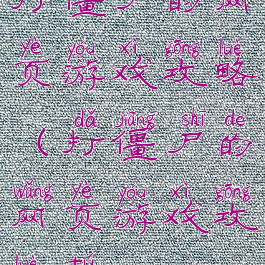 yè yóu xì gōng lüè
页游戏攻略
dǎ jiāng shī de
（打僵尸的
wǎng yè yóu xì gōng
网页游戏攻